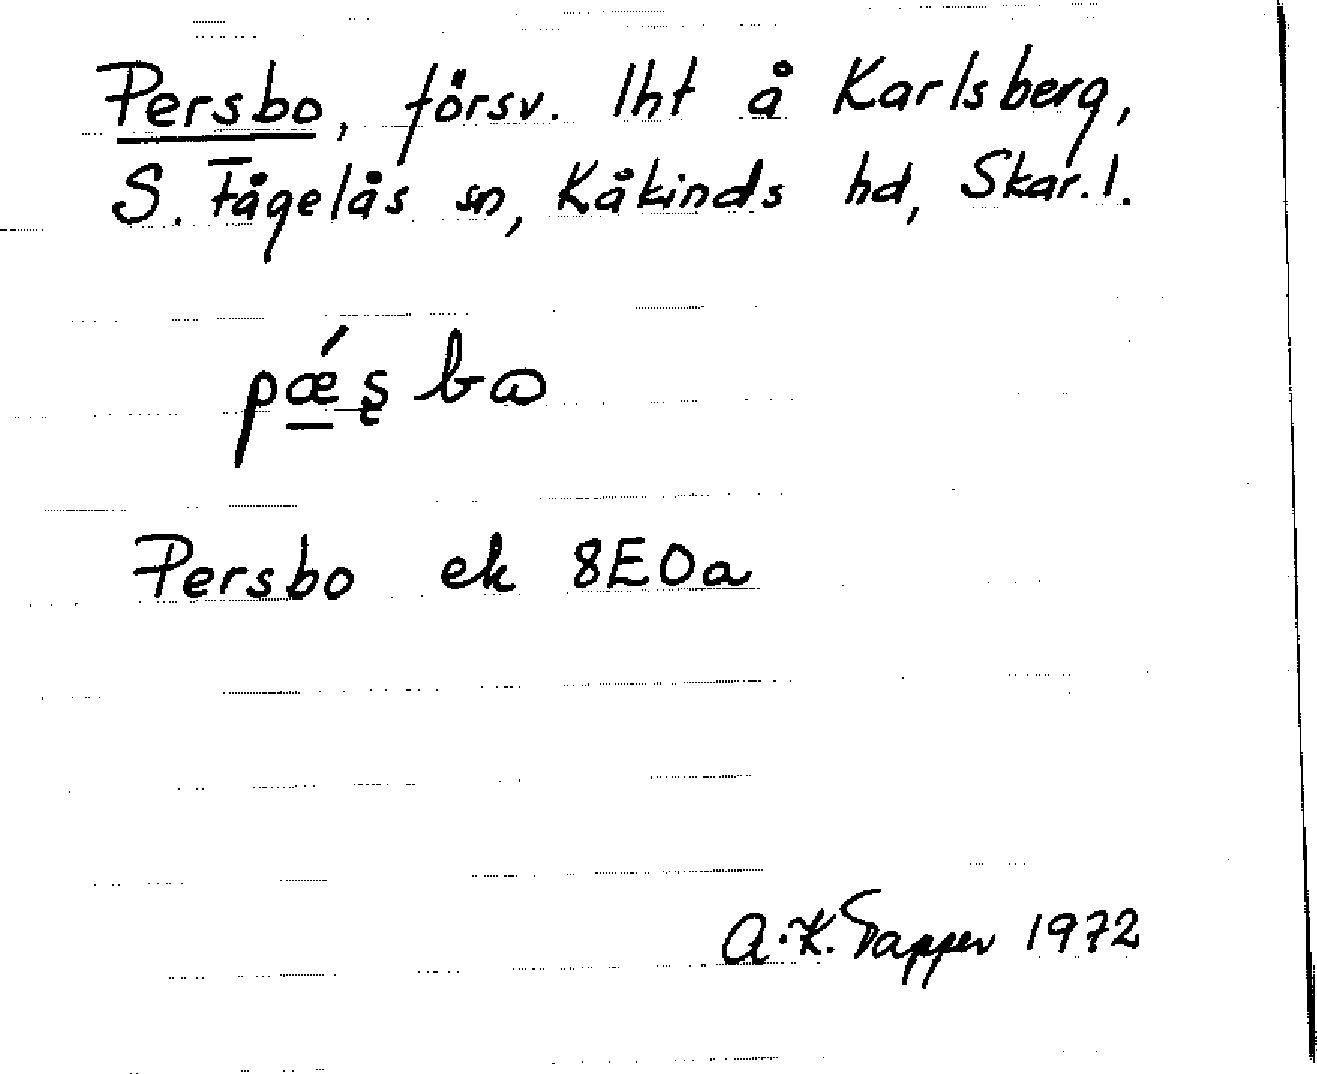 Persbo, försv. lht å Karlsberg,
S. Fågelås sn, Kåkinds hd, Skar.l.
pǽʂbɷ
Persbo ek 8E0a
A.K. Tapper 1972